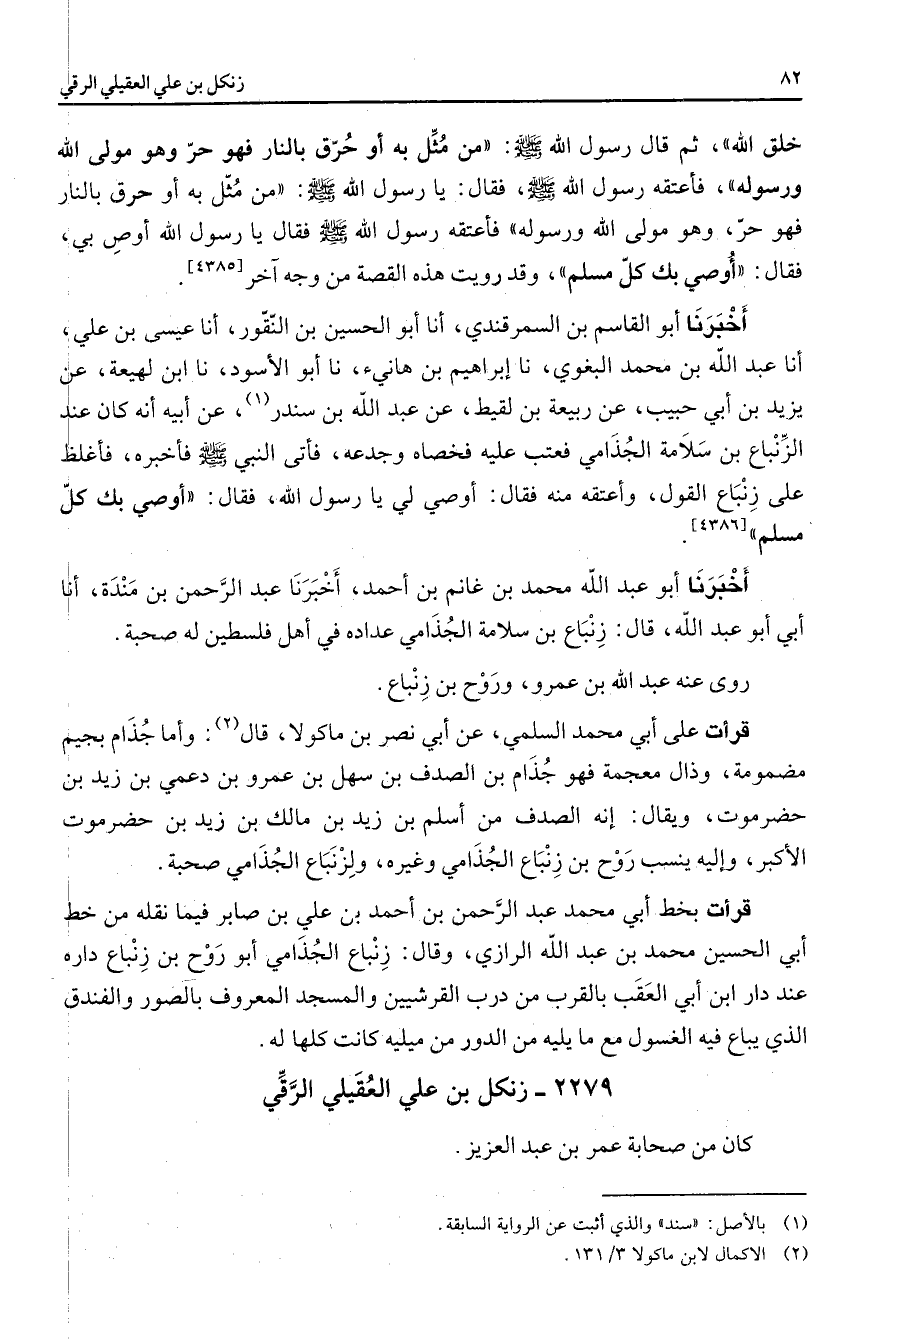 ٨٢ زنكل بن علي العقيلي الرقي
خلق الله»، ثم قال رسول الله ﷺ: «من مُثِّل به أو حُرّق بالنار فهو حرّ وهو مولى الله
ورسوله»، فأعتقه رسول الله ﷺ، فقال: يا رسول الله ﷺ: «من مُثّل به أو حرق بالنار
فهو حرّ، وهو مولى الله ورسوله» فأعتقه رسول الله ﷺ فقال يا رسول الله أوصِ بي،
فقال: «أُوصي بك كلّ مسلم»، وقد رويت هذه القصة من وجه آخر [٤٣٨٥].
أَخْبَرَنَا أبو القاسم بن السمرقندي، أنا أبو الحسين بن النّقّور، أنا عيسى بن علي،
أنا عبد اللّه بن محمد البغوي، نا إبراهيم بن هانيء، نا أبو الأسود، نا ابن لهيعة، عن
يزيد بن أبي حبيب، عن ربيعة بن لقيط، عن عبد اللّه بن سندر(١)، عن أبيه أنه كان عند
الزِّنْباع بن سَلَامة الجُذَامي فعتب عليه فخصاه وجدعه، فأتى النبي ﷺ فأخبره، فأغلظ
على زِنْبَاع القول، وأعتقه منه فقال: أوصي لي يا رسول الله، فقال: «أوصي بك كلّ
مسلم»[٤٣٨٦].
أَخْبَرَنَا أبو عبد اللّه محمد بن غانم بن أحمد، أَخْبَرَنَا عبد الرَّحمن بن مَنْدَة، أنا
أبي أبو عبد اللّه، قال: زِنْبَاع بن سلامة الجُذَامي عداده في أهل فلسطين له صحبة.
روى عنه عبد الله بن عمرو، ورَوْح بن زِنْباع.
قرأت على أبي محمد السلمي، عن أبي نصر بن ماكولا، قال(٢): وأما جُذَام بجيم
مضمومة، وذال معجمة فهو جُذَام بن الصدف بن سهل بن عمرو بن دعمي بن زيد بن
حضرموت، ويقال: إنه الصدف من أسلم بن زيد بن مالك بن زيد بن حضرموت
الأكبر، وإليه ينسب رَوْح بن زِنْبَاع الجُذَامي وغيره، ولِزْنَبَاع الجُذَامي صحبة.
قرأت بخط أبي محمد عبد الرَّحمن بن أحمد بن علي بن صابر فيما نقله من خط
أبي الحسين محمد بن عبد اللّه الرازي، وقال: زِنْبَاع الجُذَامي أبو رَوْح بن زِنْبَاع داره
عند دار ابن أبي العَقَب بالقرب من درب القرشيين والمسجد المعروف بالصور والفندق
الذي يباع فيه الغسول مع ما يليه من الدور من ميليه كانت كلها له.
٢٢٧٩ ـ زنكل بن علي العُقَيلي الرَّقِّي
كان من صحابة عمر بن عبد العزيز.
(١) بالأصل: «سند» والذي أثبت عن الرواية السابقة.
(٢) الاكمال لابن ماكولا ٣/ ١٣١.